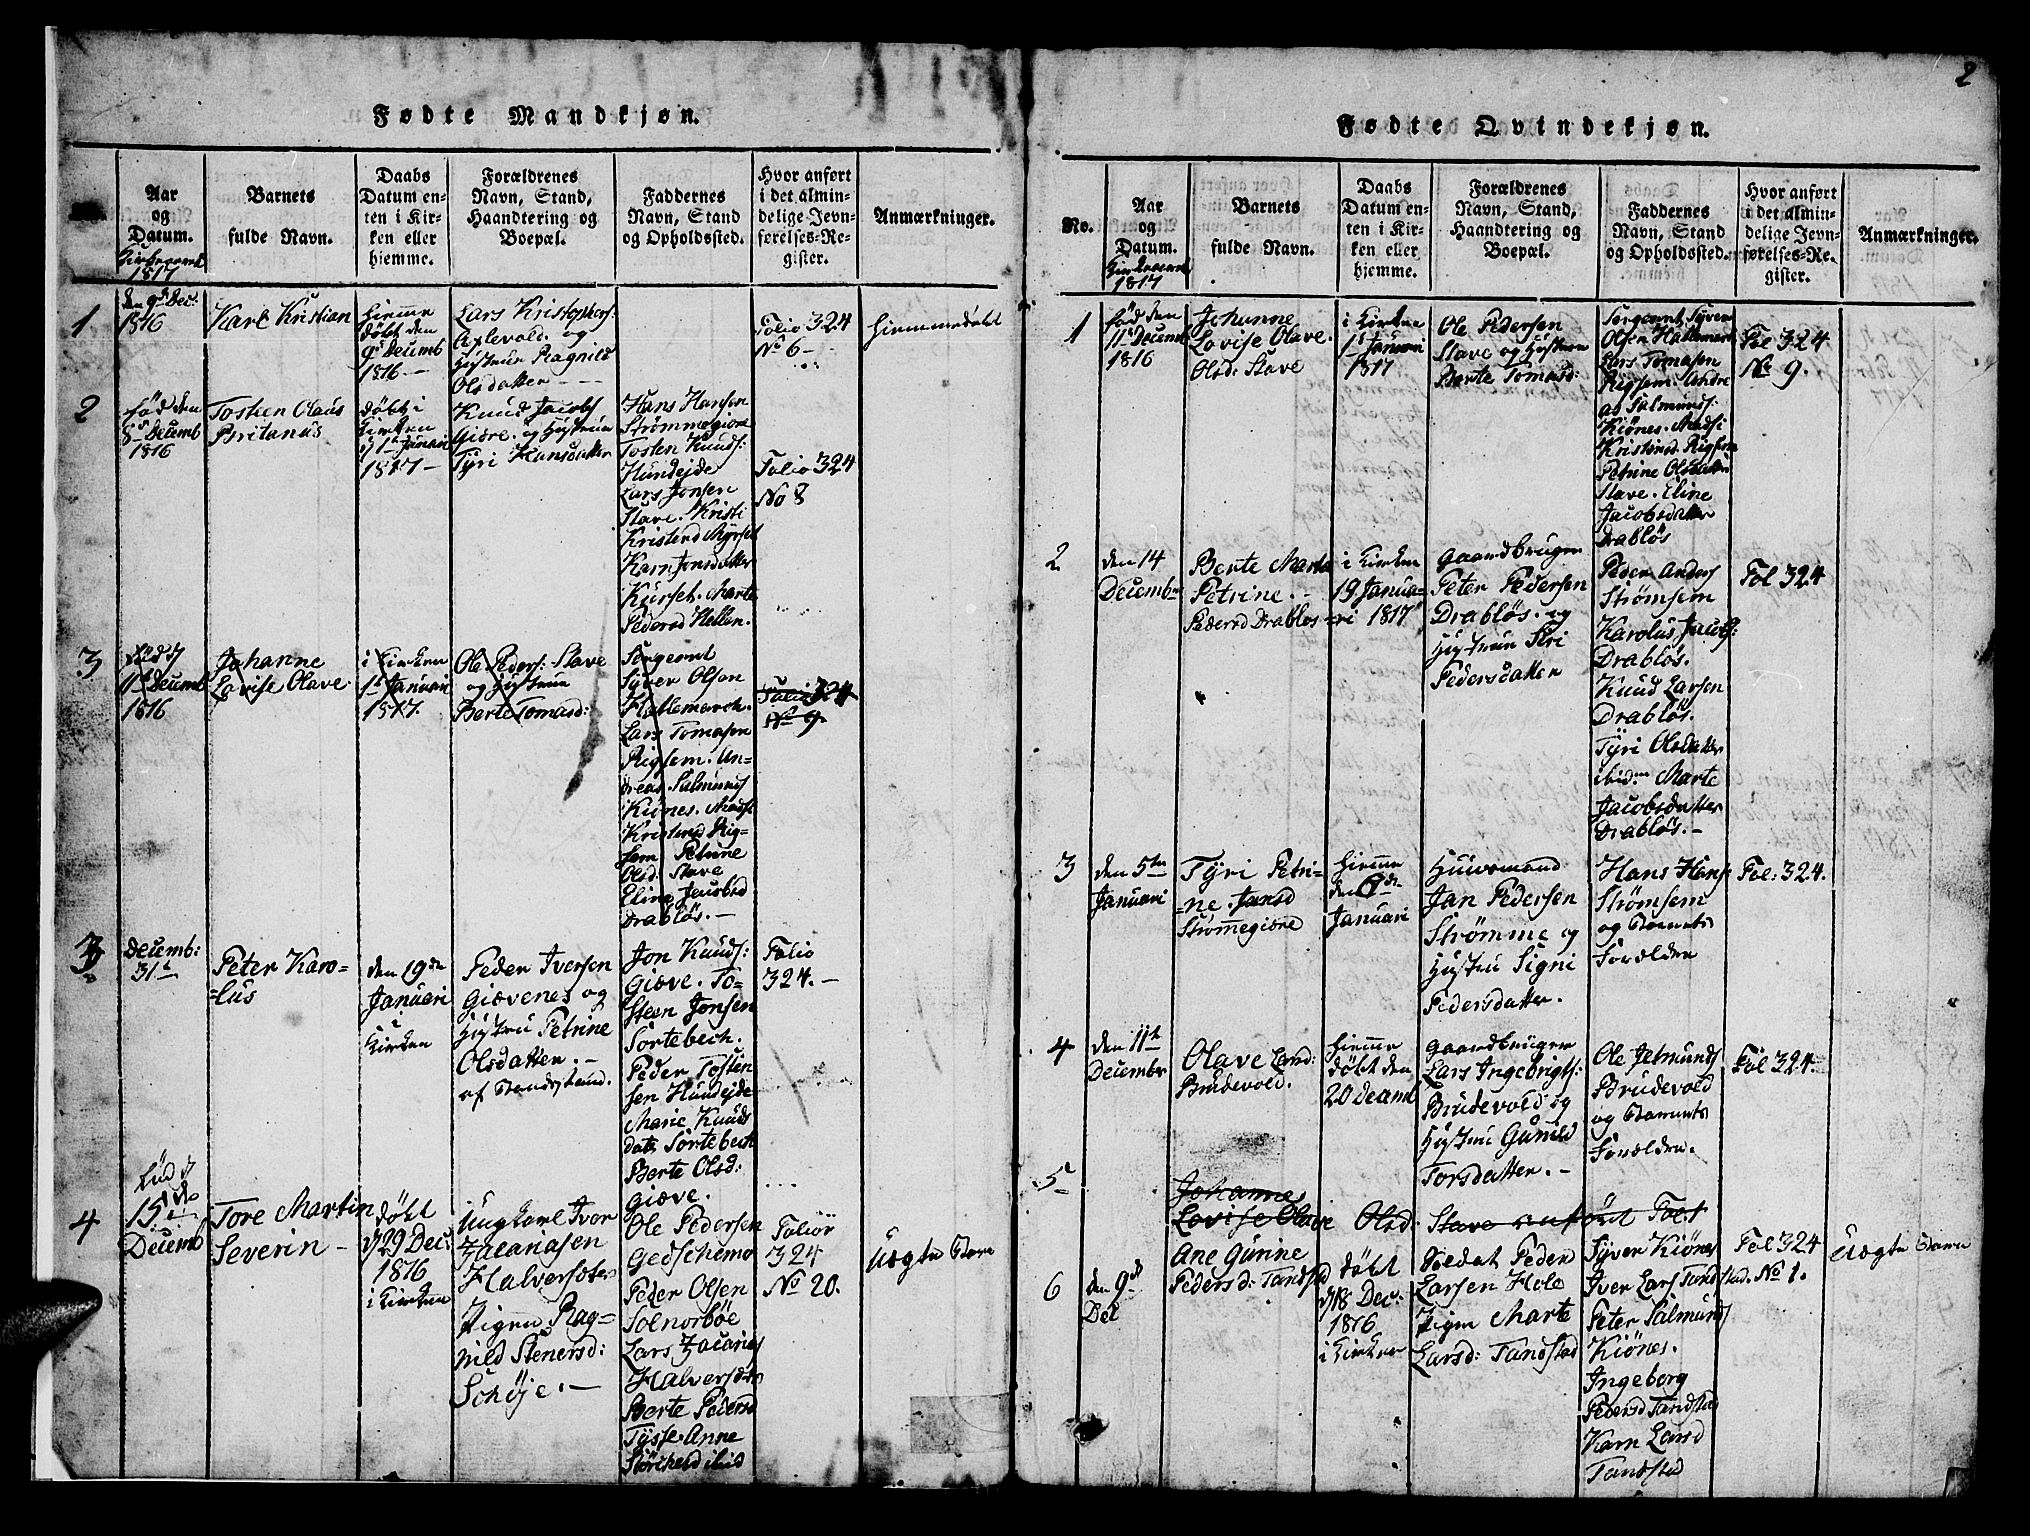 2
Fødte Mandkjøn.
Aar
og
Datum.
Kirkeaaret
1817
Barnets
fulde Navn.
Daabs
Datum en-
ten i Kir-
ken eller
hjemme.
Forældrenes
Navn, Stand,
Haandtering og
Boepæl.
Faddernes
Navn, Stand
og Opholdssted.
Hvor anført
i det almin-
delige Jevn-
førelses-Re-
gister.
Anmærkninger.
1
den 9de Dec.
1816
Karl Kristian
hjemme
døbt den
9de Decemb
1816 —
Lars Kristophers:
Axlevold og
Hustrue Ragnild
Olsdatter —
Folio 324
No 6 —
hjemmedøbt
2
fød den
8de Decemb
1816
Tosten Olaus
Britanus
døbt i
Kirken
d 1ste Januari
1817 —
Knud Jacobs
Giøre og Hustrue
Tyri Hansdatter
Hans Hansen
Strømmegiøre
Tosten Knuds:
Hundejde
Lars Jonsen
Slave. Kristi
Kristensd Myrset
Karn Jonsdatter
Kurset. Marte
Pedersd Hellen.
Folio 324
No 8
3
fød d
11te Decemb
1816
Johanne
Lovise Olave
i Kirken
1te Januari
1817.
Ole Peders: Slave
og Hustrue
Berte Tomasd:
Sergeant
Syver Olsen
Hatlemarck.
Lars Tomasen
Rigsem. An-
dreas Salmunds
Kiønes. Madsi
Kristensd Rig-
sem Petrine
Olsd. Slave
Eline Jacobsd
Drabløs. —
Folio 324
No 9.
3
Decemb:
31te
Peter Karo-
=lus
den 19de
Januari
i
Kirken
Peder Iversen
Giævenes og
Hustru Petrine
Olsdatter. —
Jon Knuds:
Giæve. To-
steen Jonsen
Sortebech.
Peder Tosten
sen Hundejde
Marie Knuds
dat. Sortebech
Berte Olsd:
Giæve.
Folio
324. —
4
fød d
15de
Decemb
Tore Martin
Severin —
døbt
d 29 Dec:
1816
i Kirken
Ungkarl Iver
Zacariasen
Halversæter
Pigen Rag-
nild Stenersd:
Schøje. —
Ole Pedersen
Gedschemo
Peder Olsen
Solnorbøe
Lars Zacarias
Halversæter
Berte Pedersd
Tysse. Anne
Folio
324
No 20.
Uægte Barn
Fødte Qvindekjøn.
No.
Aar
og
Datum.
Kirkeaaret
1817
Barnets
fulde Navn.
Daabs
Datum en-
ten i Kir-
ken eller
hjemme.
Forældrenes
Navn, Stand,
Haandtering og
Boepæl.
Faddernes
Navn, Stand
og Opholdssted.
Hvor anført
i det almin-
delige Jevn-
førelses-Re-
gister.
Anmærkninger.
1
fød den
11te Decemb
1816
Johanne
Lovise Olave.
Olsd: Slave
i Kirken
1te Januari
1817
Ole Pedersen
Slave og Hustrue
Berte Tomasd:
Sergeant Syver
Olsen Hatlemark
Lars Tomasen
Rigsem. Andre
as Salmunds:
Kiønes. Madsi
Kristensd Rigsem
Petrine Olsdatter
Slave. Eline
Jacobsdatter
Drabløs
Fol 324
No 9.
2
den 14
Decembr
Berte Marta
Petrine. —
Pedersd Drabløs
i Kirken
19 Janua-
=ri 1817
Gaardbruger
Peter Pedersen
Drabløs. og
Hustrue Siri
Pedersdatter
Peder Anders
Strømsem
Karolus Jacobs:
Drabløs.
Knud Larsen
Drabløs.
Tyri Olsdatter
ibidm Marte
Jacobsdatter
Drabløs. —
Fol 324
3
den 5te
Januari
Tyri Petri-
=ne. Jansd
Strømegiøre
hjemme
den 6de
Januari
Huusmand
Jan Pedersen
Strømme og
Hustru Signi
Pedersdatter.
Hans Hans:
Strømsem
og Barnets
Forælder
Fol: 324.
4
den 11te
Decembr
Olave Larsd:
Brudevold.
hjemme
døbt den
20 Decemb
Gaardbruger
Lars Ingebrigts:
Brudevold og
Hustru Gunild
Torsdatter. —
Ole Jetmunds
Brudevold
og Barnets
Forælder.
Fol 324.
5
Johanne
Lovise Olave Olsd: Slave anført Fol 1
6
den 9de
Dec
Ane Gurine
Pedersd: Tandstad
døbt
d 18 Dec:
1816
i Kirken
Soldat Peder
Larsen Hole
Pigen Marte
Larsd: Tandstad
Syver Kiønes
Iver Lars Tandstad.
Peter Salmunds
Kiønes.
Ingeborg
Pedersd Tandstad
Karn Larsd
Tandstad
Fol 324
No 1.
Uægte Barn